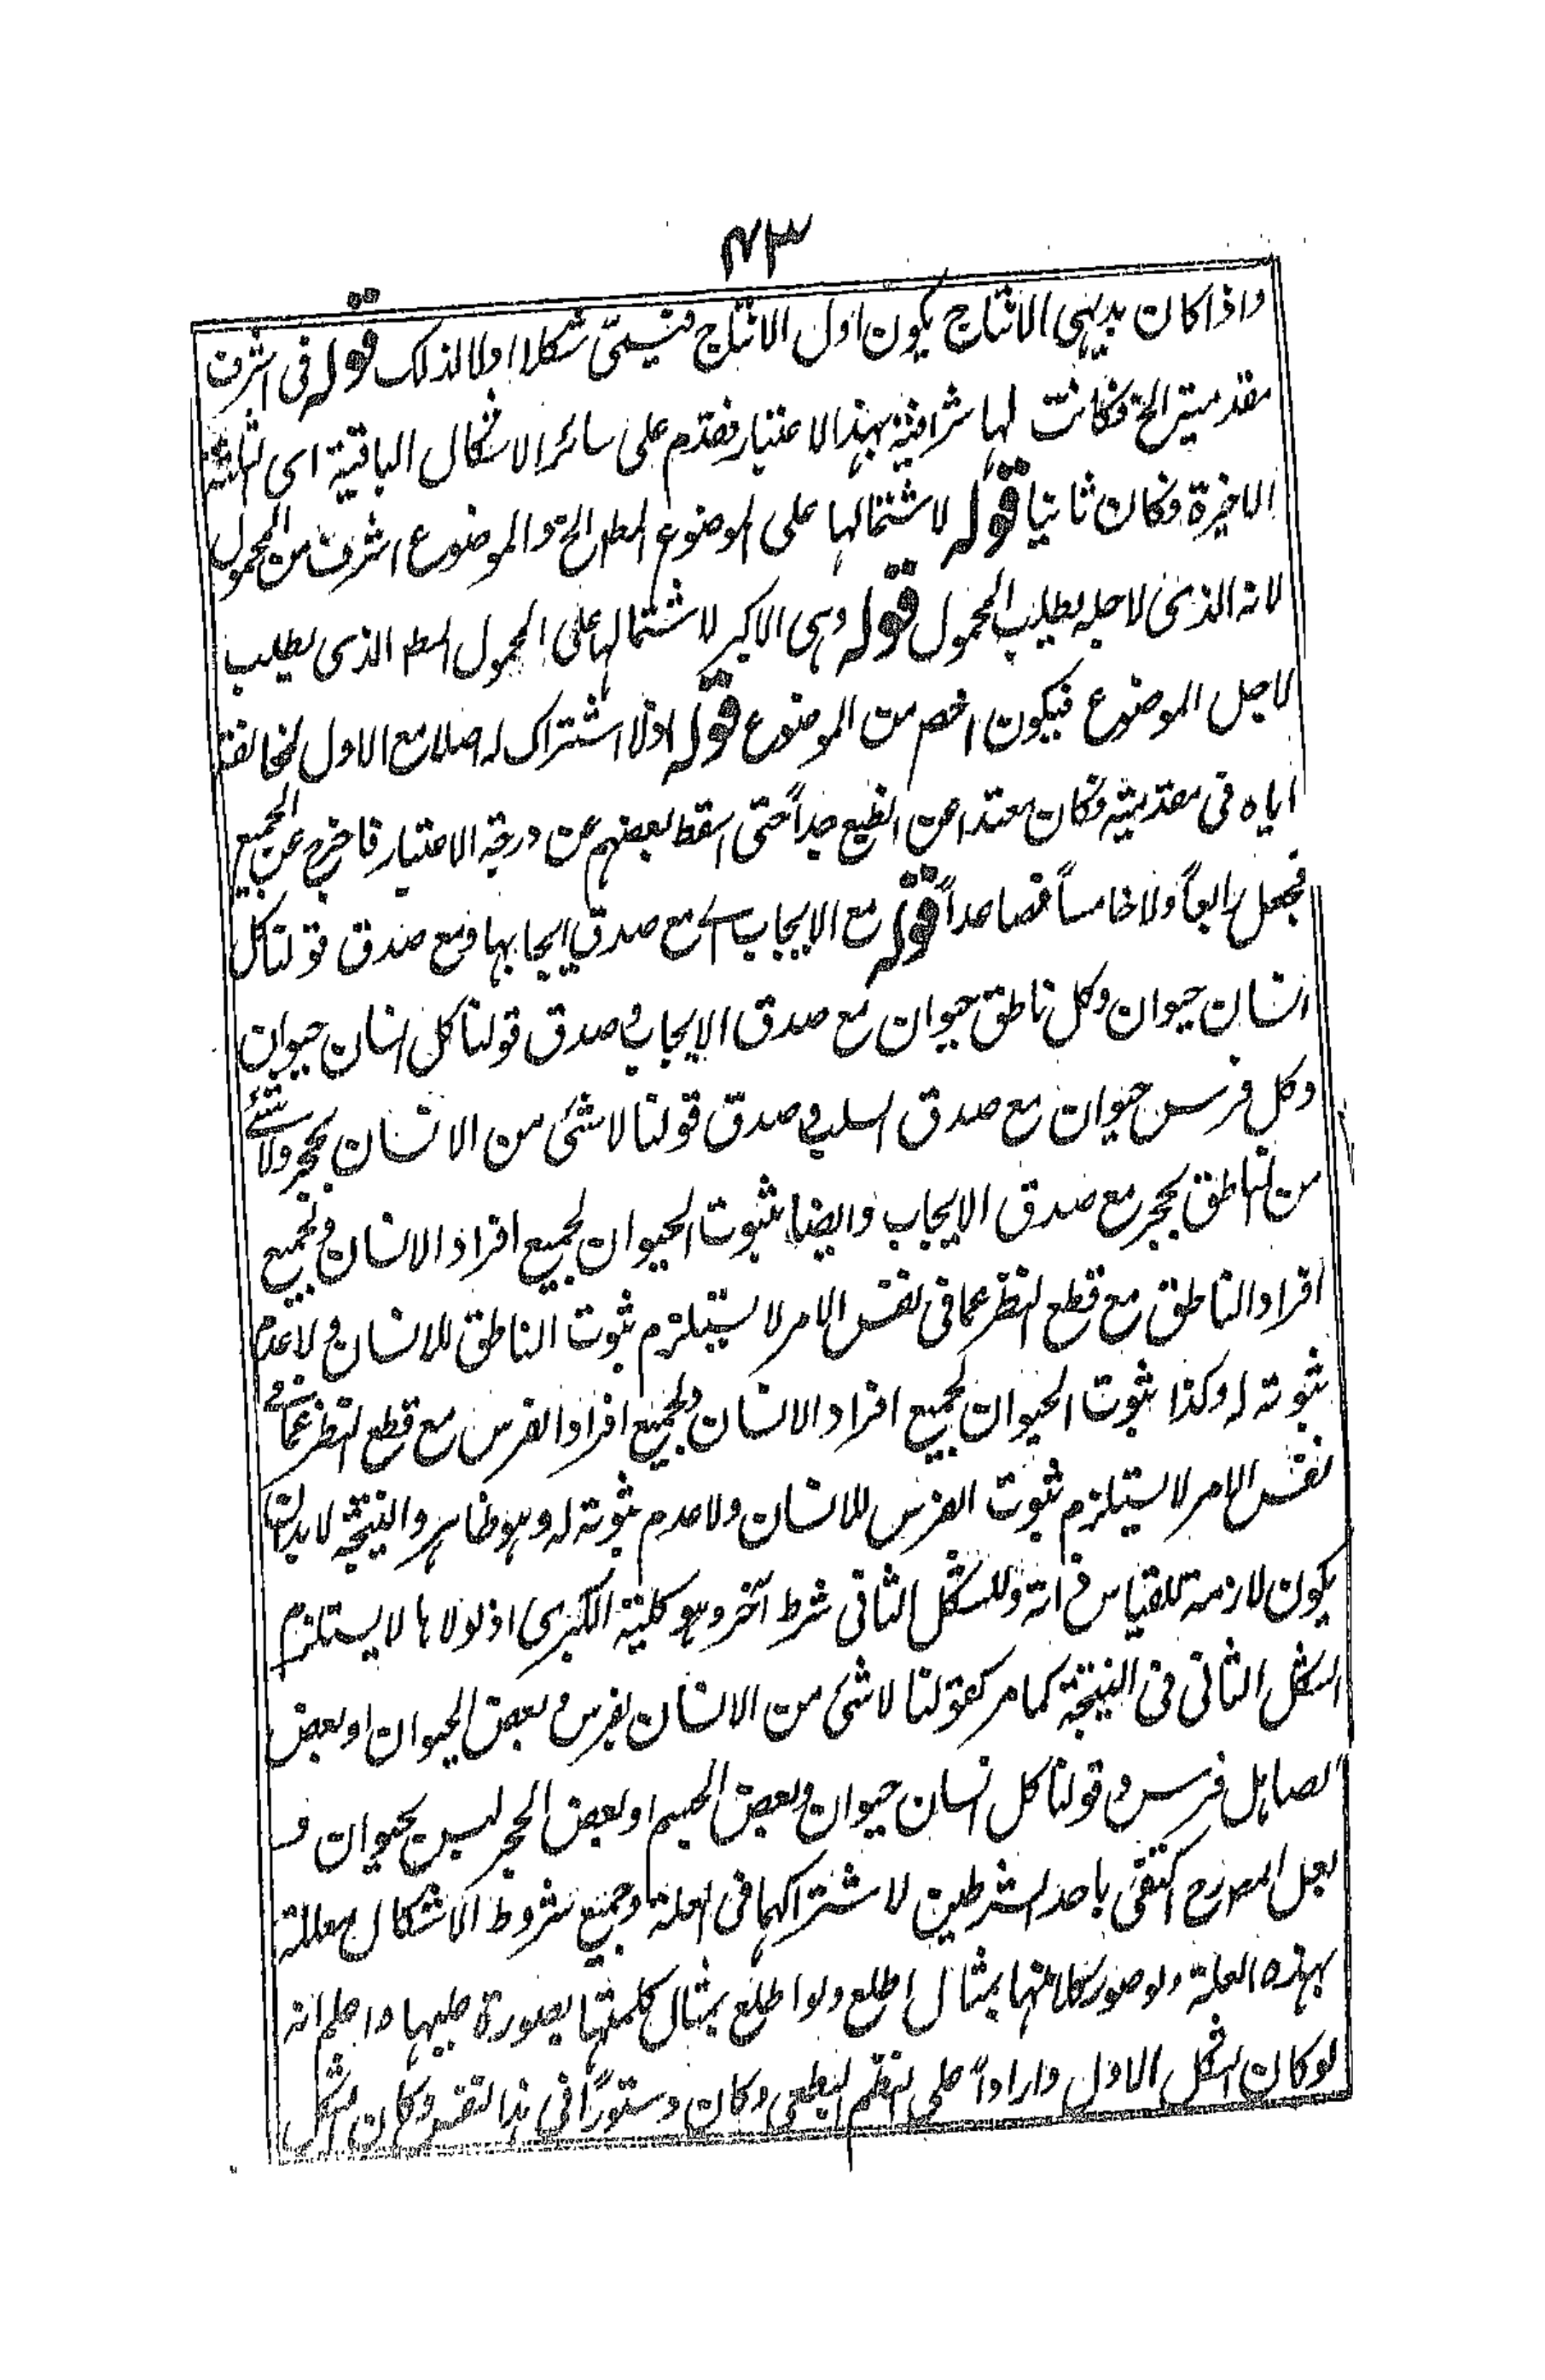 ٤٣
واذا كان بديهى الانتاج يكون اول الانتاج فيسمّى شكلا اولا لذلك قوله فى اشرف
مقدمتيه الخ فكانت لها شرافة بهذا الاعتبار فقدم على سائر الاشكال الباقية اى الثلثة
الاخيرة فكان ثانيا قوله لاشتمالها على الموضوع المط الخ والموضوع اشرف من المحمول
لانه الذى لاجله يطلب المحمول قوله وهى الاكبر لاشتمالها على المحمول المط الذى يطلب
لاجل الموضوع فيكون اخس من الموضوع قوله اذ لا اشتراك له اصلا مع الاول لمخالفته
اياه فى مقدمتيه فكان بعيدا عن الطبع جداً حتى اسقط بعضهم عن درجة الاعتبار فاخرج عن الجميع
فجعل رابعاً ولا خامساً فصاعداً قوله مع الايجاب اے مع صدق ايجابها فمع صدق قولنا كل
انسان حيوان وكل ناطق حيوان مع صدق الايجاب وصدق قولنا كل انسان حيوان
وكل فرس حيوان مع صدق السلب وصدق قولنا لا شئ من الانسان بحجر ولا شئ
من الناطق بحجر مع صدق الايجاب وايضا ثبوت الحيوان لجميع افراد الانسان ولجميع
افراد الناطق مع قطع النظر عما فى نفس الامر لا يستلزم ثبوت الناطق للانسان ولا عدم
ثبوته له وكذا ثبوت الحيوان لجميع افراد الانسان ولجميع افراد الفرس مع قطع النظر عما فى
نفس الامر لا يستلزم ثبوت الفرس للانسان ولا عدم ثبوته له وهو ظاهر والنتيجة لا بد ان
يكون لازمة للقياس لذاته وللشكل الثانى شرط آخر وهو كلية الكبرى اذ لولاها لا يستلزم
الشكل الثانى فى النتيجة كما مر كقولنا لا شئ من الانسان بفرس وبعض الحيوان او بعض
الصاهل فرس وقولنا كل انسان حيوان وبعض الجسم او بعض الحجر ليس بحيوان
لعل المص رح اكتفى باحد الشرطين لاشتراكهما فى العلة وجميع شروط الاشكال معللة
بهذه العلة ولو صور كلا منها بمثال اطلع ولو اطلع بمثال بصورة عليها واعلم انه
لو كان الشكل الاول وارداً على النظم الطبعى وكان دستورًا فى هذا الفن وكان الشكل